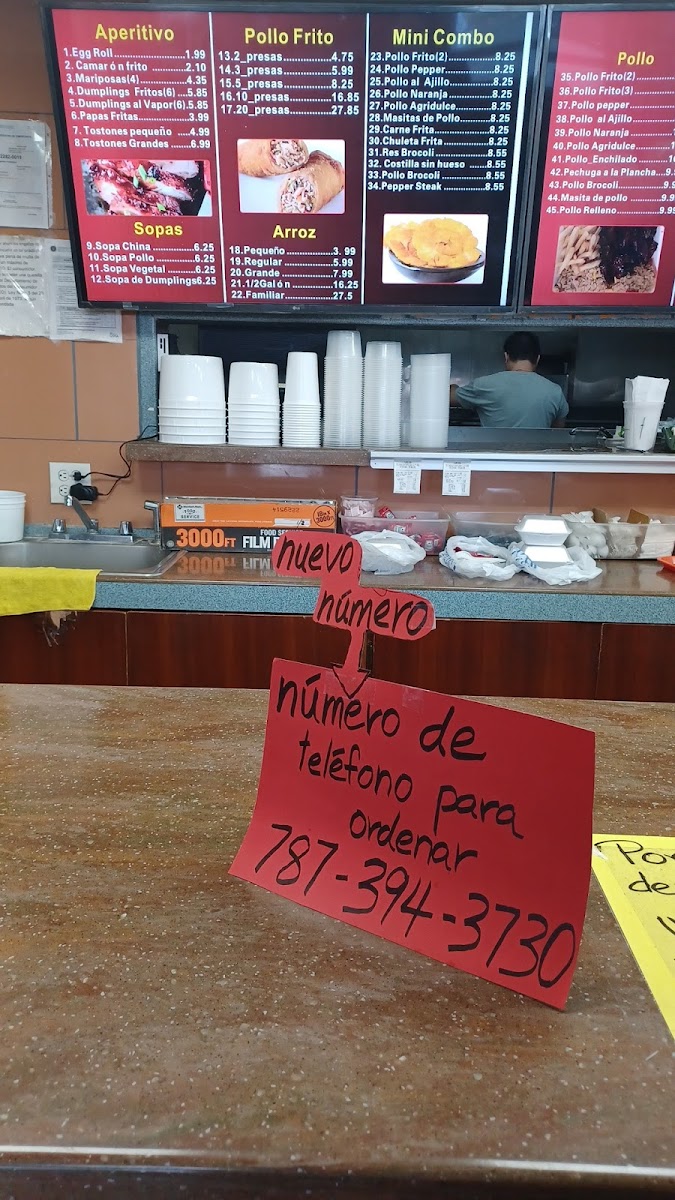 Aperitivo
1.Egg Roll.....................1.99
2. Camarón frito ............2.10
3.Mariposas(4)..............4.35
4.Dumplings Fritos(6) ...5.85
5.Dumplings al Vapor(6).5.85
6.Papas Fritas...............3.99
7. Tostones pequeño ....4.99
8.Tostones Grandes .....6.99
Sopas
9.Sopa China ............6.25
10.Sopa Pollo .............6.25
11.Sopa Vegetal .........6.25
12.Sopa de Dumplings6.25
Pollo Frito
13.2_presas...............4.75
14.3_presas...............5.99
15.5_presas...............8.25
16.10_presas............16.85
17.20_presas............27.85
Arroz
18.Pequeño ..............3. 99
19.Regular ................5.99
20.Grande .................7.99
21.1/2Galón ............16.25
22.Familiar................27.5
Mini Combo
23.Pollo Frito(2)..............8.25
24.Pollo Pepper..............8.25
25.Pollo al Ajillo..............8.25
26.Pollo Naranja............8.25
27.Pollo Agridulce..........8.25
28.Masitas de Pollo........8.25
29.Carne Frita................8.25
30.Chuleta Frita.............8.25
31.Res Brocoli ...............8.55
32. Costilla sin hueso .....8.55
33.Pollo Brocoli..............8.55
34.Pepper Steak ............8.55
Pollo
35.Pollo Frito(2)
36.Pollo Frito(3)
37.Pollo pepper
38.Pollo al Ajillo
39.Pollo Naranja
40.Pollo Agridulce
41.Pollo_Enchilado
42.Pechuga a la Plancha
43.Pollo Brocoli
44.Masita de pollo
45.Pollo Relleno
3000FT FILM
FOOD SERVICE
nuevo
número
número de
teléfono para
ordenar
787-394-3730
de